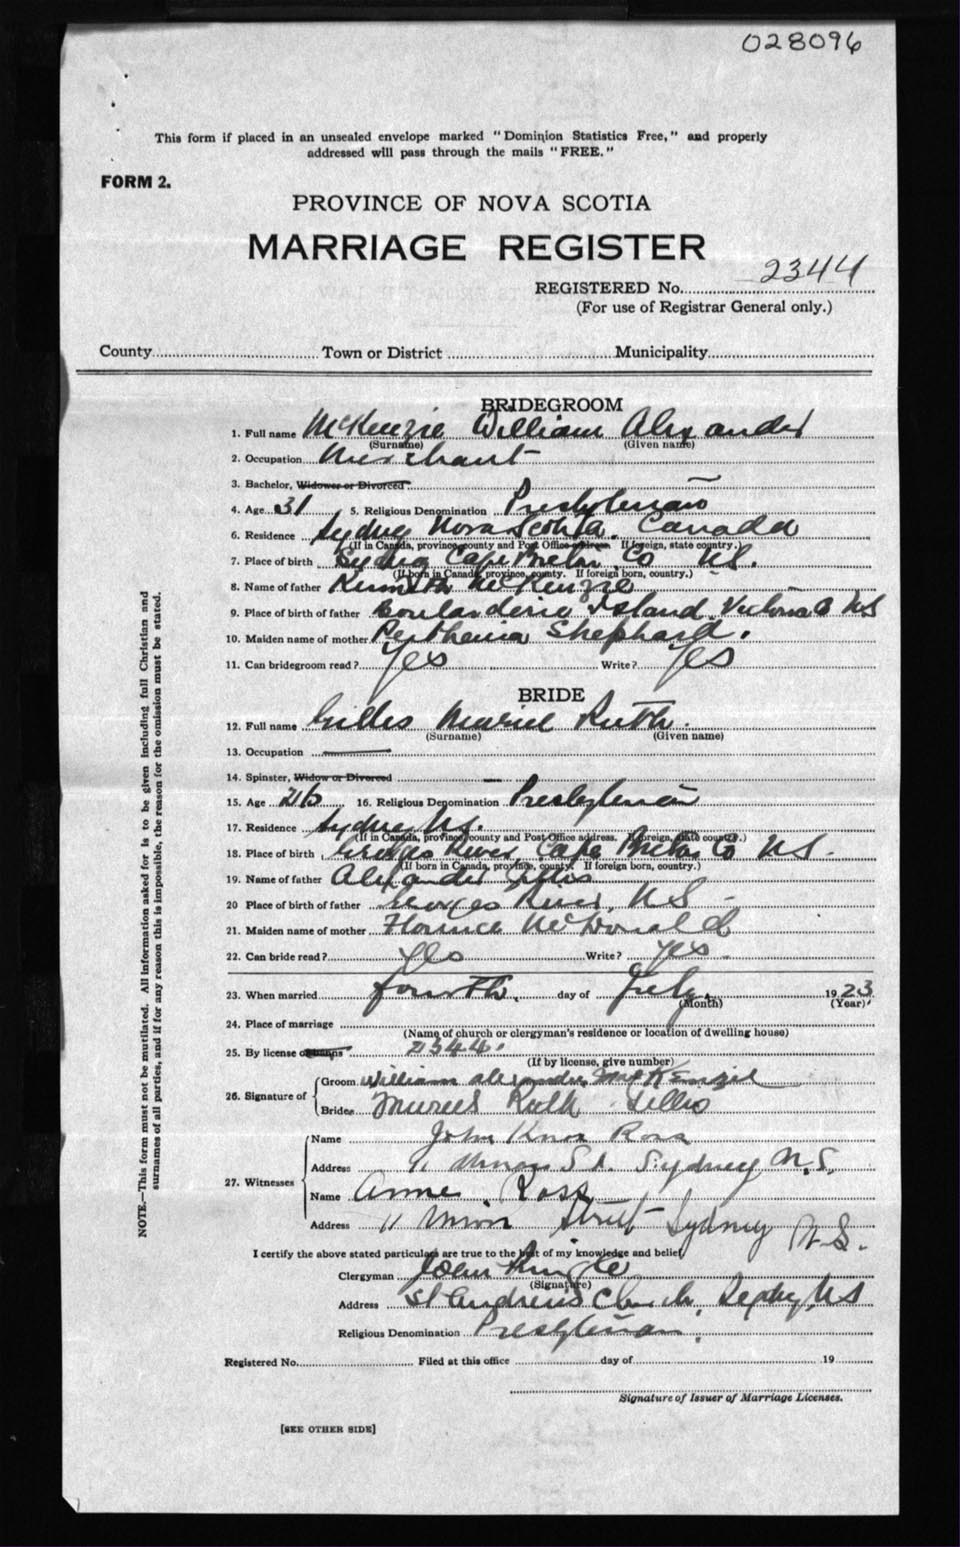 028096
This form if placed in an unsealed envelope marked "Dominion Statistics Free," and properly
addressed will pass through the mails "FREE."
FORM 2.
PROVINCE OF NOVA SCOTIA
MARRIAGE REGISTER
REGISTERED No. 2344
(For use of Registrar General only.)
County Town or District Municipality
BRIDEGROOM
1. Full name McKenzie William Alexander
(Surname) (Given name)
2. Occupation Merchant
3. Bachelor, Widower or Divorced
4. Age 31 5. Religious Denomination Presbyterian
6. Residence Sydney Nova Scotia. Canada
(If in Canada, province, county and Post Office address. If foreign, state country.)
7. Place of birth Sydney Cape Breton Co NS.
(If born in Canada, province, county. If foreign born, country.)
8. Name of father Kenneth McKenzie
9. Place of birth of father Boulardarie Island Victoria Co NS
10. Maiden name of mother Shephard.
11. Can bridegroom read? Yes Write? Yes
BRIDE
12. Full name Gillis Muriel Ruth.
(Surname) (Given name)
13. Occupation
14. Spinster, Widow or Divorced
15. Age 16. Religious Denomination Presbyterian
17. Residence Sydney NS.
(If in Canada, province, county and Post Office address. If foreign, state country.)
18. Place of birth Georges River Cape Breton Co NS.
(If born in Canada, province, county. If foreign born, country.)
19. Name of father Alexander Gillis
20 Place of birth of father Georges River, NS
21. Maiden name of mother Florence McDonald
22. Can bride read? Yes Write? Yes.
23. When married fourth. day of July. 1923
(Month) (Year)
24. Place of marriage
(Name of church or clergyman's residence or location of dwelling house)
25. By license or banns 2344.
(If by license, give number)
26. Signature of Groom William Alexander McKenzie
Bride Muriel Ruth Gillis
27. Witnesses Name John Knox Ross
Address 11 Union St. Sydney N.S.
Name Annie Ross
Address 11 Union Street Sydney N.S.
I certify the above stated particulars are true to the best of my knowledge and belief,
Clergyman John Pringle
(Signature)
Address St Andrews Church, Sydney, NS
Religious Denomination Presbyterian.
Registered No. Filed at this office day of 19
Signature of Issuer of Marriage Licenses.
[SEE OTHER SIDE]
NOTE.—This form must not be mutilated. All information asked for is to be given including full Christian and
surnames of all parties, and if for any reason this is impossible, the reason for the omission must be stated.